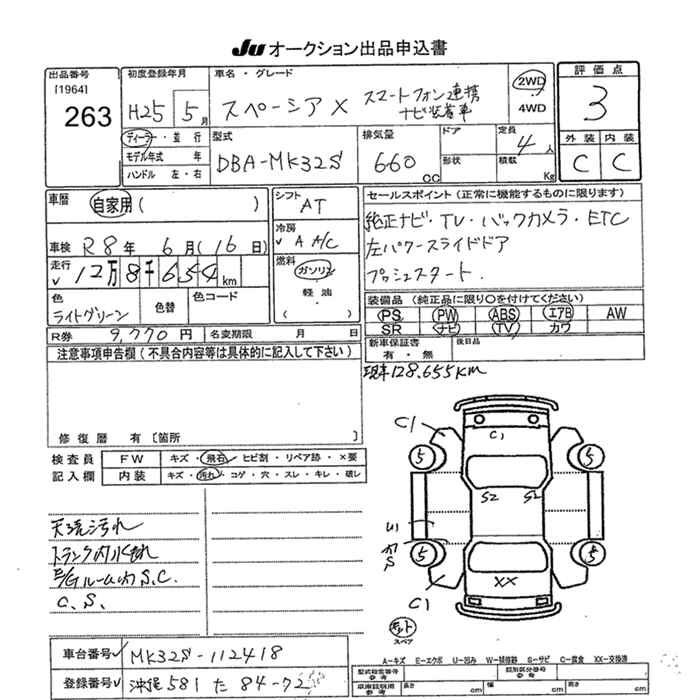 JU オークション出品申込書
出品番号
[1964]
263
初度登録年月
H25 5月
車名・グレード
スペーシア X スマートフォン連携
ナビ装着車
2WD
4WD
評価点
3
外装 内装
C C
ディーラー・並行
モデル年式 年
ハンドル 左・右
型式
DBA-MK32S
排気量
660 cc
ドア
形状
定員
4人
積載 Kg
車歴
自家用 ( )
シフト
AT
車検 R8年 6月(16日)
冷房
✓ A A/C
走行
✓ 12万8千654 km
燃料
ガソリン
軽油
( )
色
ライトグリーン
色替
色コード
R券 9,770円 名変期限 月 日
セールスポイント (正常に機能するものに限ります)
純正ナビ・TV・バックカメラ・ETC
左パワースライドドア
プッシュスタート.
装備品 (純正品に限り○を付けてください)
PS PW ABS エアB AW
SR ナビ TV カワ
新車保証書
有・無
後日品
現車128.655km
注意事項申告欄 (不具合内容等は具体的に記入して下さい)
修復歴 有 [箇所 ]
検査員
記入欄
FW キズ・飛石・ヒビ割・リペア跡・×要
内装 キズ・汚れ・コゲ・穴・スレ・キレ・破レ
天張汚れ
トランク内水もれ
E/Gルーム内 S.C.
C.S.
C1
C1
5
5
S2 S2
U1
カS
5
5
XX
C1
キット
スペア
車台番号 ✓ MK32S-112418
登録番号 ✓ 沖縄 581 た 84-72
A-キズ E-エクボ U-凹み W-補修跡 S-サビ C-腐食 XX-交換済
型式指定番号
参考
類別区分番号
参考
車庫証明用
参考
長さ cm 幅 cm 高さ cm